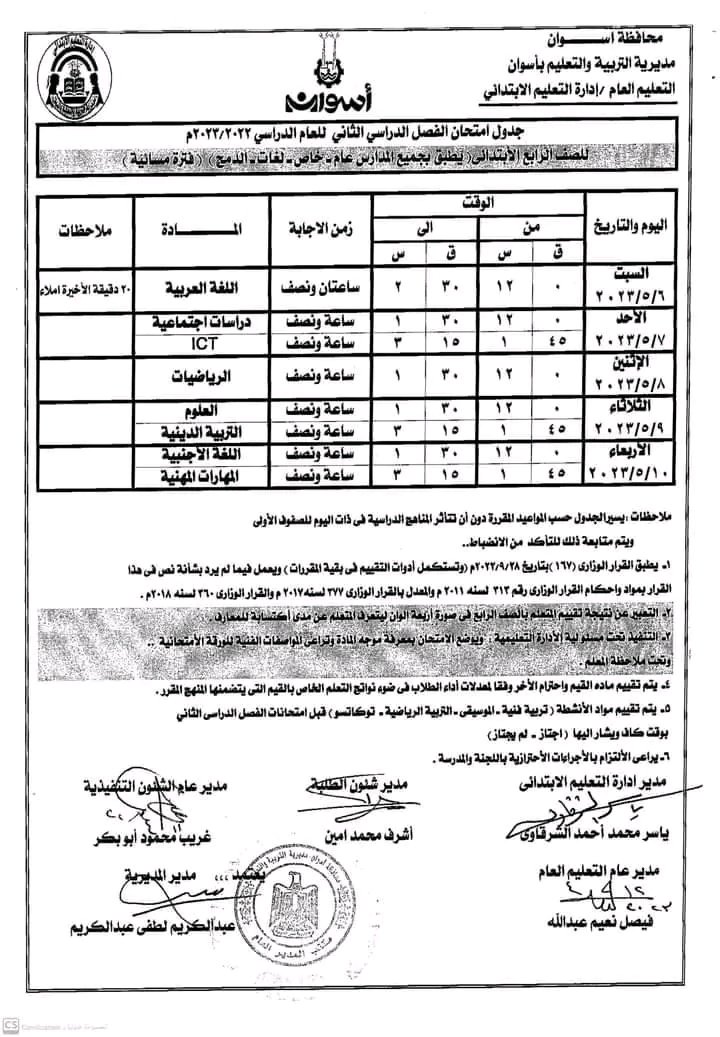 محافظة أسوان
مديرية التربية والتعليم بأسوان
التعليم العام /إدارة التعليم الابتدائي
أسوان
جدول امتحان الفصل الدراسي الثاني للعام الدراسي ٢٠٢٣/٢٠٢٢م
للصف الرابع الابتدائى( يطبق بجميع المدارس عام - خاص - لغات - الدمج) ( فترة مسائية )
اليوم والتاريخ الوقت زمن الاجابة المـــادة ملاحظات
من الى
ق س ق س
السبت ٢٠٢٣/٥/٦ ٠ ١٢ ٣٠ ٢ ساعتان ونصف اللغة العربية ٢٠ دقيقة الأخيرة املاء
الأحد ٢٠٢٣/٥/٧ ٠ ١٢ ٣٠ ١ ساعة ونصف دراسات اجتماعية
٤٥ ١ ١٥ ٣ ساعة ونصف ICT
الإثنين ٢٠٢٣/٥/٨ ٠ ١٢ ٣٠ ١ ساعة ونصف الرياضيات
الثلاثاء ٢٠٢٣/٥/٩ ٠ ١٢ ٣٠ ١ ساعة ونصف العلوم
٤٥ ١ ١٥ ٣ ساعة ونصف التربية الدينية
الأربعاء ٢٠٢٣/٥/١٠ ٠ ١٢ ٣٠ ١ ساعة ونصف اللغة الأجنبية
٤٥ ١ ١٥ ٣ ساعة ونصف المهارات المهنية
ملاحظات :يسير الجدول حسب المواعيد المقررة دون أن تتأثر المناهج الدراسية فى ذات اليوم للصفوف الأولى
ويتم متابعة ذلك للتأكد من الانضباط..
١- يطبق القرار الوزارى (١٦٧) بتاريخ ٢٠٢٢/٩/٢٨م (وتستكمل أدوات التقييم فى بقية المقررات ) ويعمل فيما لم يرد بشأنة نص فى هذا
القرار بمواد واحكام القرار الوزارى رقم ٣١٣ لسنه ٢٠١١ م والمعدل بالقرار الوزارى ٣٧٧ لسنه ٢٠١٧م والقرار الوزارى ٣٦٠ لسنه ٢٠١٨م .
٢- التعبير عن نتيجة تقييم المتعلم بالصف الرابع فى صورة أربعة ألوان ليتعرف المتعلم عن مدى أكتسابة للمعارف .
٣- التنفيذ تحت مسئولية الأدارة التعليمية ; ويوضع الامتحان بمعرفة موجه المادة وتراعى المواصفات الفنية للورقة الأمتحانية ..
وتحت ملاحظة المعلم .
٤- يتم تقييم ماده القيم واحترام الأخر وفقا لمعدلات أداء الطلاب فى ضوء نواتج التعلم الخاص بالقيم التى يتضمنها المنهج المقرر .
٥- يتم تقييم مواد الأنشطة ( تربية فنية - الموسيقى - التربية الرياضية - توكاتسو) قبل امتحانات الفصل الدراسى الثاني
بوقت كاف ويشار اليها ( اجتاز - لم يجتاز)
٦- يراعى الألتزام بالأجراءات الأحترازية باللجنة والمدرسة .
مدير ادارة التعليم الابتدائى مدير شئون الطلبة مدير عام الشئون التنفيذية
ياسر محمد أحمد الشرقاوى أشرف محمد امين غريب محمود أبو بكر
مدير عام التعليم العام يعتمد ،،، مدير المديرية
فيصل نعيم عبدالله عبدالكريم لطفى عبدالكريم
مكتب المدير العام
CS